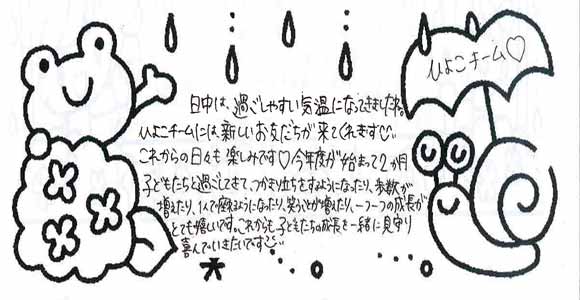 ひよこチーム♡
日中は、過ごしやすい気温になってきましたね。
ひよこチームには新しいお友だちが来てくれます
これからの日々も楽しみです♡今年度が始まって2か月
子どもたちと過ごしてきて、つかまり立ちをするようになったり、歩数が
増えたり、1人で座れるようになったり、笑うことが増えたり、一つ一つの成長が
とても嬉しいです。これからも子どもたちの成長を一緒に見守り
喜んでいきたいです